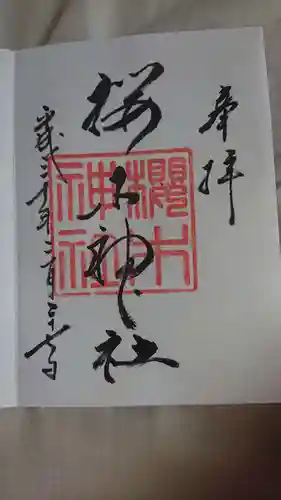 奉拝
櫻木神社
桜木神社
平成三十年二月二十七日